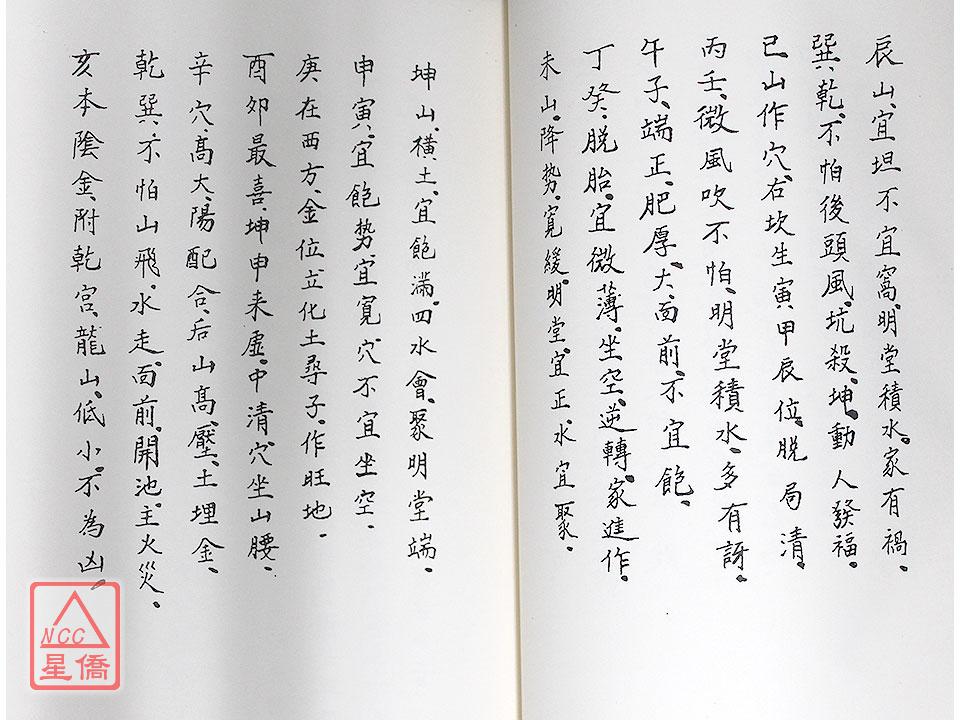 辰山、宜坦不宜窩、明堂積水、家有禍、
巽、乾、不怕後頭風、坑殺、坤、動人發福、
巳山作穴、右坎生寅、甲辰位、脫局清、
丙壬、微風吹不怕、明堂積水、多有訝、
午子、端正、肥厚、大、面前、不宜飽、
丁癸、脫胎、宜微薄、坐空、逆轉、家進作、
未山、降勢、寬緩、明堂、宜正、水宜聚、
坤山、橫土、宜飽滿、四水會、聚明堂端、
申寅、宜飽勢、宜寬、穴不宜坐空、
庚在西方、金位立化土尋子、作旺地、
酉卯最喜、坤申来虛、中清、穴坐山腰、
辛穴、高大、陽配合、后山高、壓、土埋金、
乾巽、不怕山飛、水走、面前、開池、主火災、
亥本陰金、附乾宮、龍山、低小、不為凶、
NCC
星僑